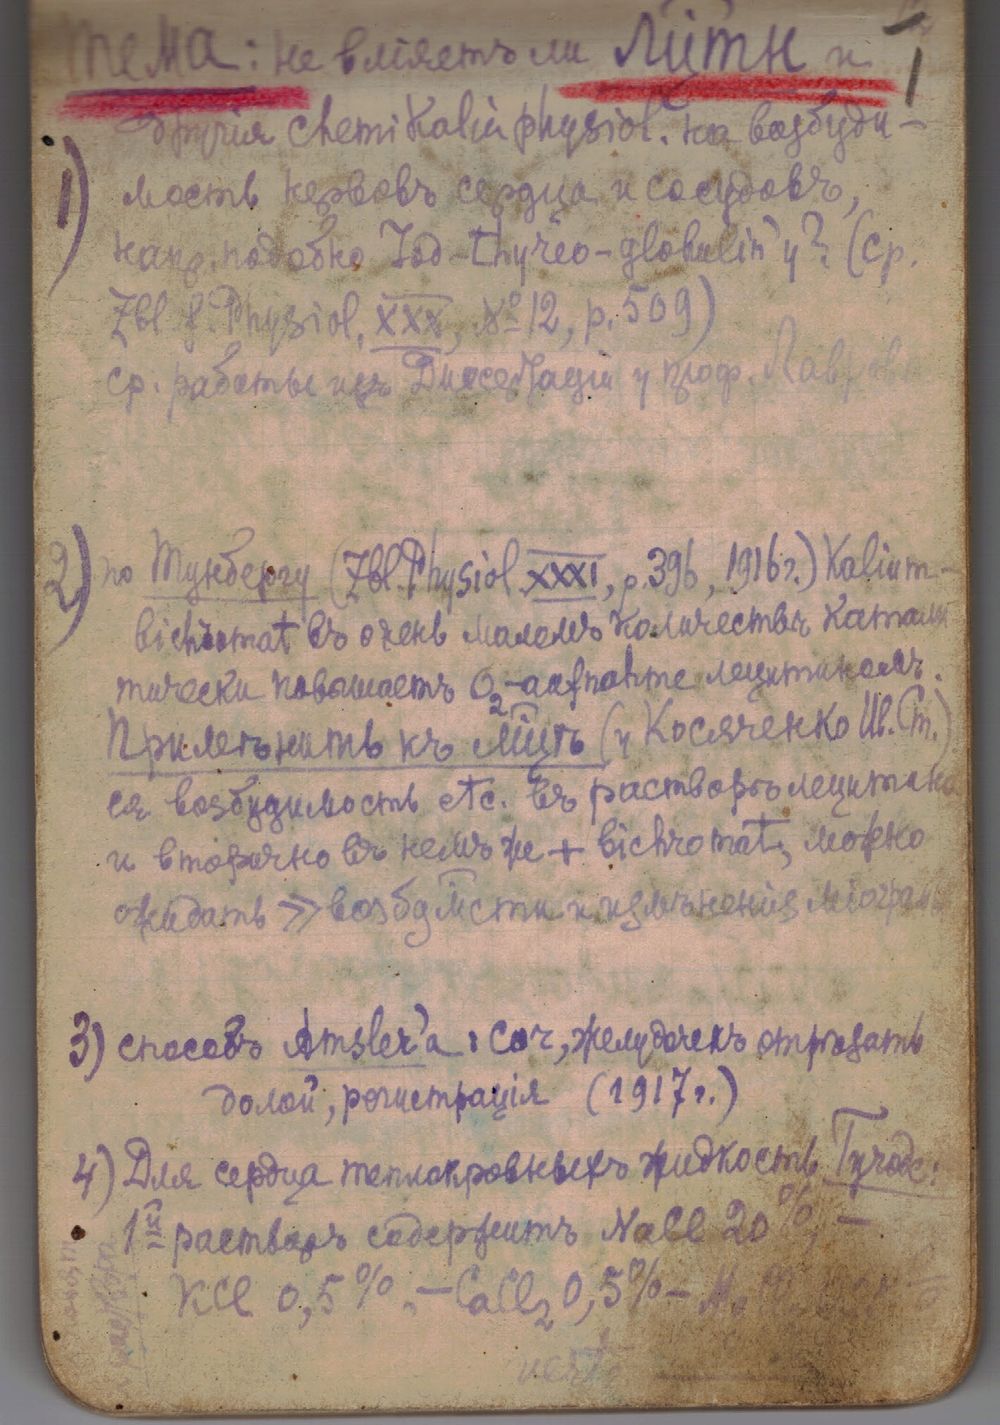 Тема: не вліяетъ ли Литій и
другія chemiкаліи physiol. на возбуди-
1) мость нервовъ сердца и сосудовъ,
напр. подобно Jod-thyreo-globulin'у? (ср.
Zbl. f. Physiol. XXX, № 12, p. 509)
ср. работы изъ Диссертаціи у проф. Лавр
2) по Тунбергу (Zbl. Physiol XXXI, p. 396, 1916 г.) Kalium-
bichromat въ очень маломъ количествѣ катали
тически повышаетъ O2-aufnahme лецитиномъ.
Примѣнить къ (у Косяченко Ив. Ст.)
ея возбудимость etc. въ растворѣ лецитина
и вторично въ немъ же + bichromat, можно
ожидать > и измѣненія міограм
3) способъ Amsler'a: желудочекъ отрѣзать
долой, регистрація (1917 г.)
4) Для сердца теплокровныхъ жидкость
1й растворъ содержитъ NaCl 20%, —
KCl 0,5%. — CaCl2 0,5% —